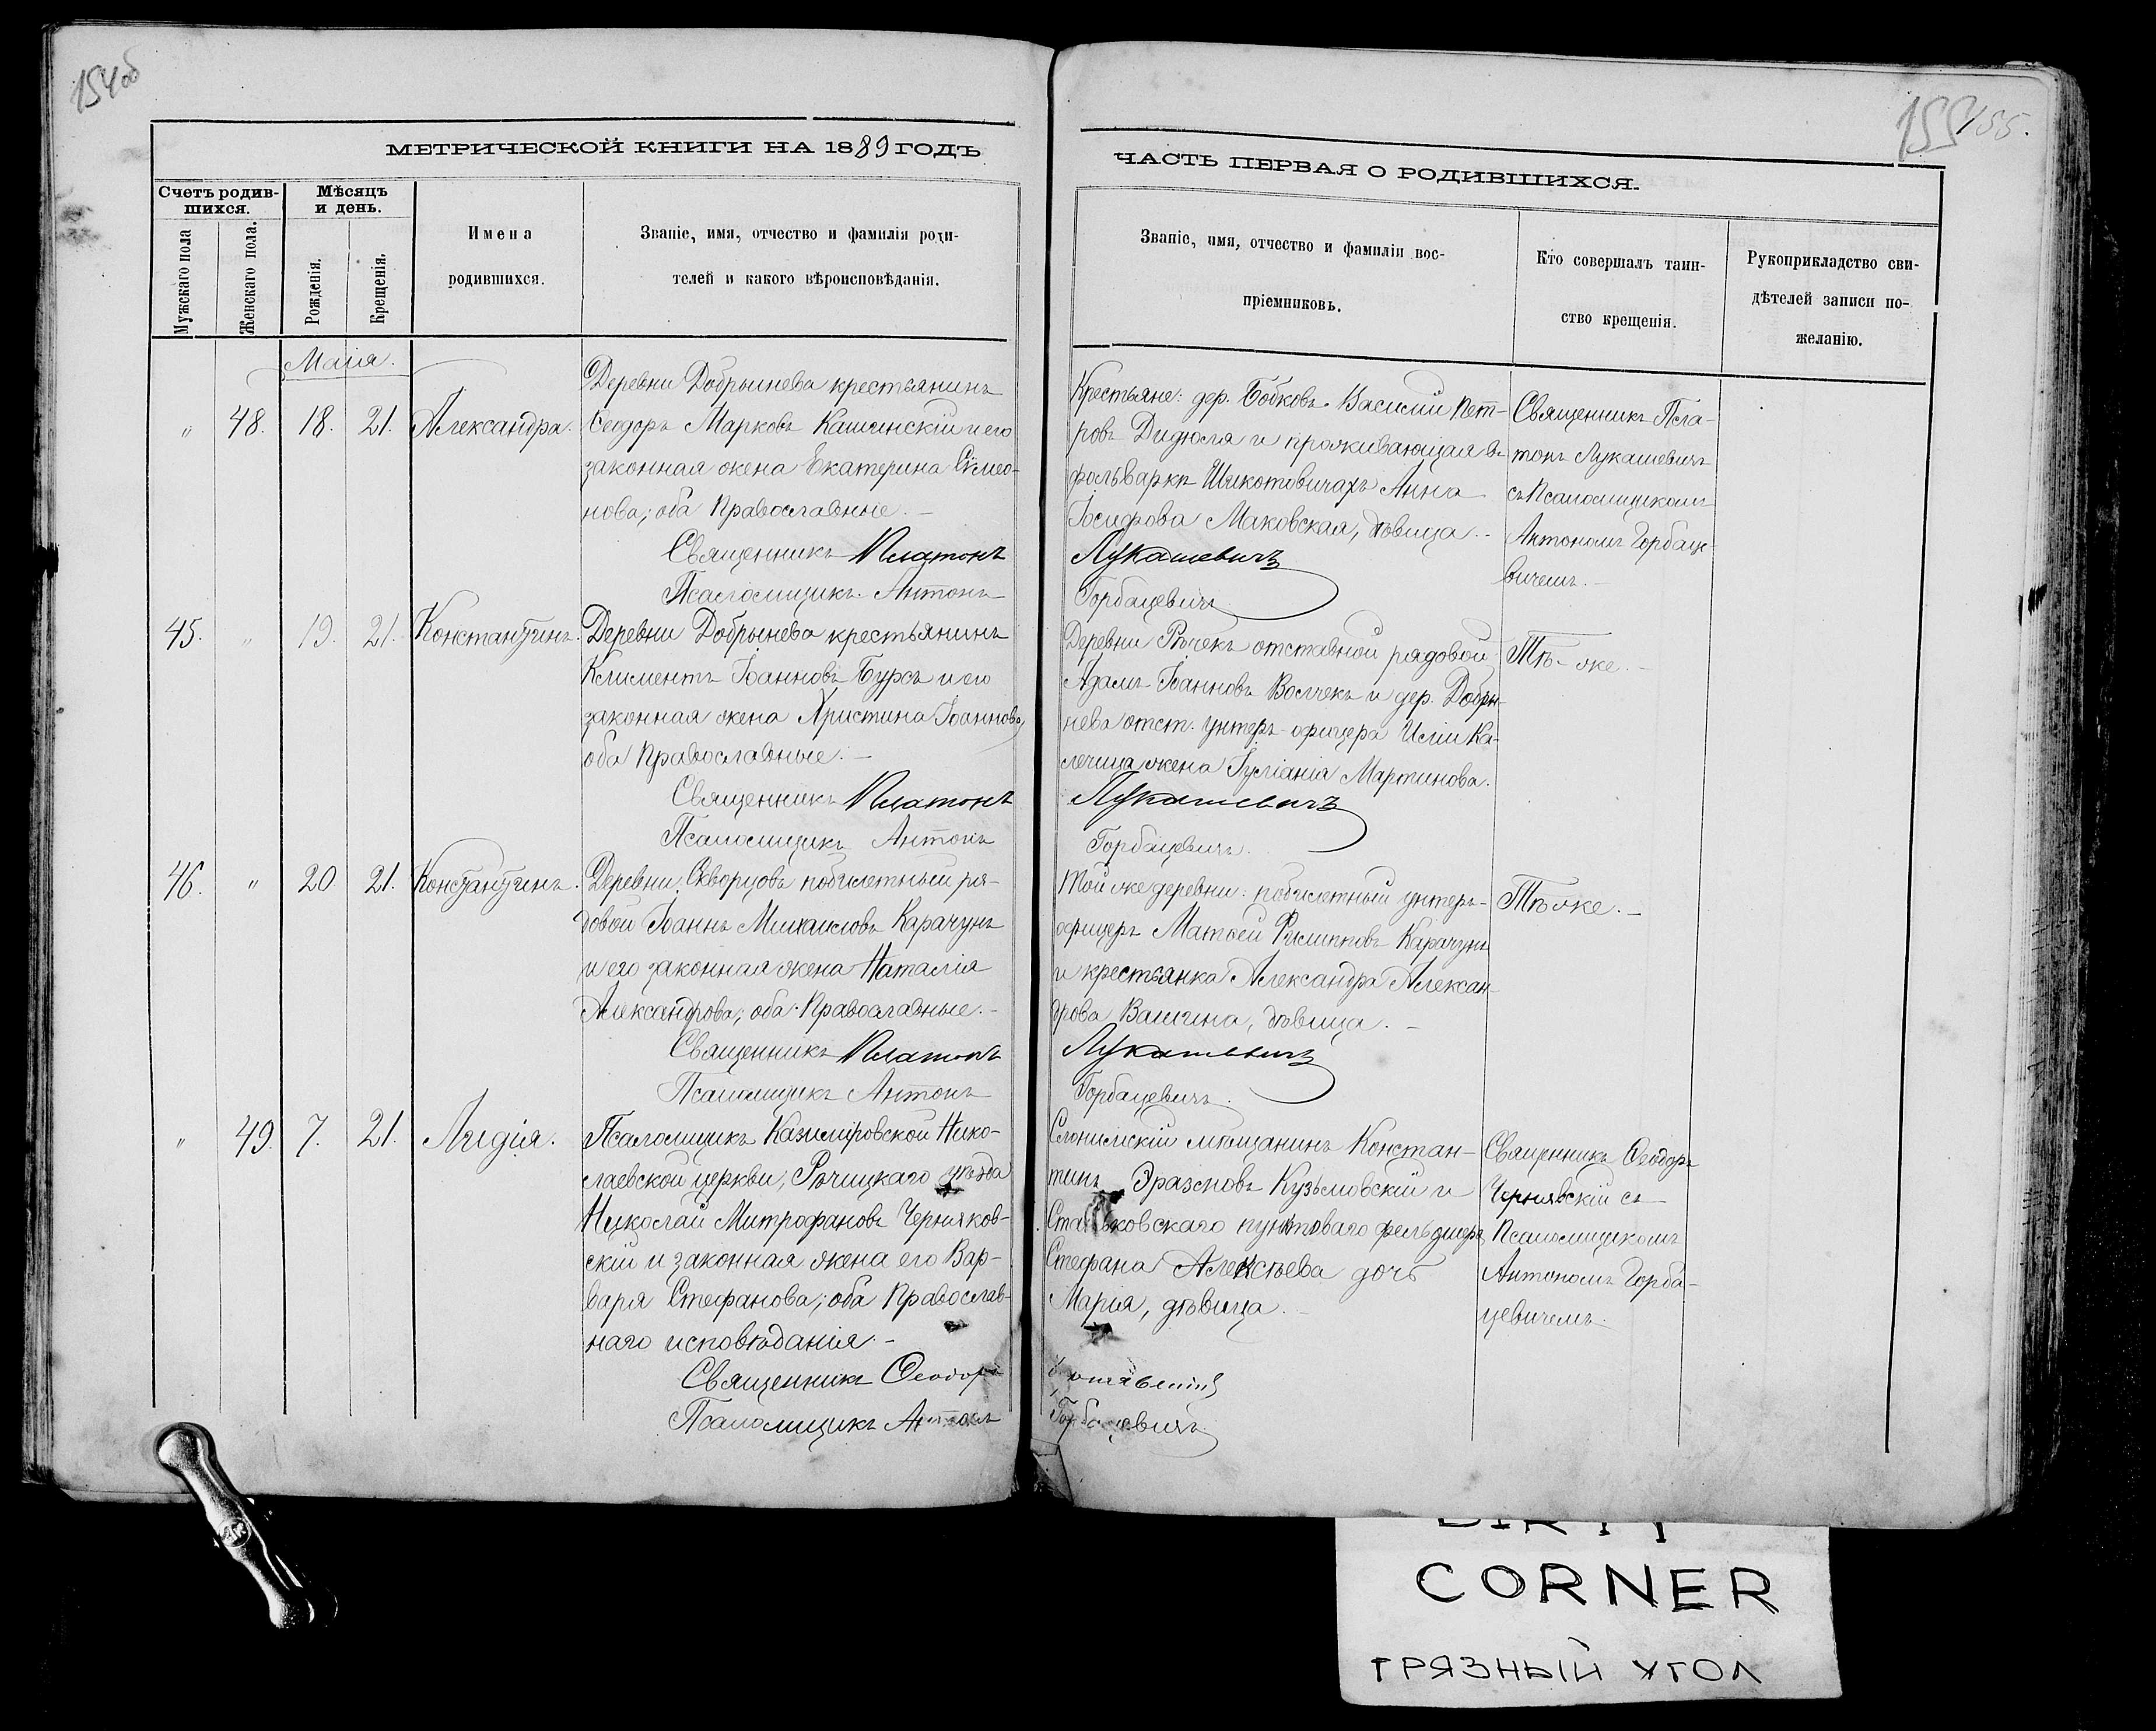 154об
МЕТРИЧЕСКОЙ КНИГИ НА 1889 ГОДЪ
Счетъ родив-
шихся.
Мужскаго пола
Женскаго пола.
Мѣсяцъ
и день.
Рожденія.
Крещенія.
Имена
родившихся.
Званіе, имя, отчество и фамилія роди-
телей и какого вѣроисповѣданія.
Маія.
„ 48. 18. 21. Александра.
Деревни Добрынева крестьянинъ
Ѳеодоръ Марковъ Кашинскій и его
законная жена Екатерина Сѵмео-
нова; оба Православные. –
Священникъ Платонъ
Псаломщикъ Антонъ
45. „ 19. 21. Константинъ.
Деревни Добрынева крестьянинъ
Климентъ Іоанновъ Бурсъ и его
законная жена Христина Іоаннова,
оба Православные. –
Священникъ Платонъ
Псаломщикъ Антонъ
46. „ 20 21. Константинъ.
Деревни Скворцовъ побилетный ря-
довой Іоаннъ Михаиловъ Карачунъ
и его законная жена Наталія
Александрова; оба Православные. –
Священникъ Платонъ
Псаломщикъ Антонъ
„ 49. 7. 21. Лидія.
Псаломщикъ Казиміровской Нико-
лаевской церкви, Рѣчицкаго уѣзда
Николай Митрофановъ Черняков-
скій и законная жена его Вар-
вара Стефанова; оба Православ-
наго исповѣданія. –
Священникъ Ѳеодоръ
Псаломщикъ Антонъ
155 155.
ЧАСТЬ ПЕРВАЯ О РОДИВШИХСЯ.
Званіе, имя, отчество и фамиліи вос-
пріемниковъ.
Кто совершалъ таин-
ство крещенія.
Рукоприкладство сви-
дѣтелей записи по-
желанію.
Крестьяне: дер. Бобковъ Василій Пет-
ровъ Дидюля и проживающая въ
фольваркѣ Шикотовичахъ Анна
Іосифова Маковская, дѣвица. –
Лукашевичъ
Горбацевичъ
Священникъ Пла-
тонъ Лукашевичъ
съ Псаломщикомъ
Антономъ Горбаце-
вичемъ. –
Деревни Рѣчекъ отставной рядовой
Адамъ Іоанновъ Волчекъ и дер. Добры-
невъ отст. унтеръ-офицера Иліи Ка-
лечица жена Іуліанія Мартинова.
Лукашевичъ
Горбацевичъ.
Тѣ-же. –
Той же деревни: побилетный унтеръ-
офицеръ Матѳей Филипповъ Карачунъ
и крестьянка Александра Алексан-
дрова Вашина, дѣвица. –
Лукашевичъ
Горбацевичъ.
Тѣ же. –
Слонимскій мѣщанинъ Констан-
тинъ Эразмовъ Кузьмовскій и
Станьковскаго пунктоваго фельдшера
Стефана Алексѣева дочь
Марія, дѣвица. –
Горбацевичъ
Священникъ Ѳеодоръ
Чернявскій съ
Псаломщикомъ
Антономъ Горба-
цевичемъ.
CORNER
ГРЯЗНЫЙ УГОЛ